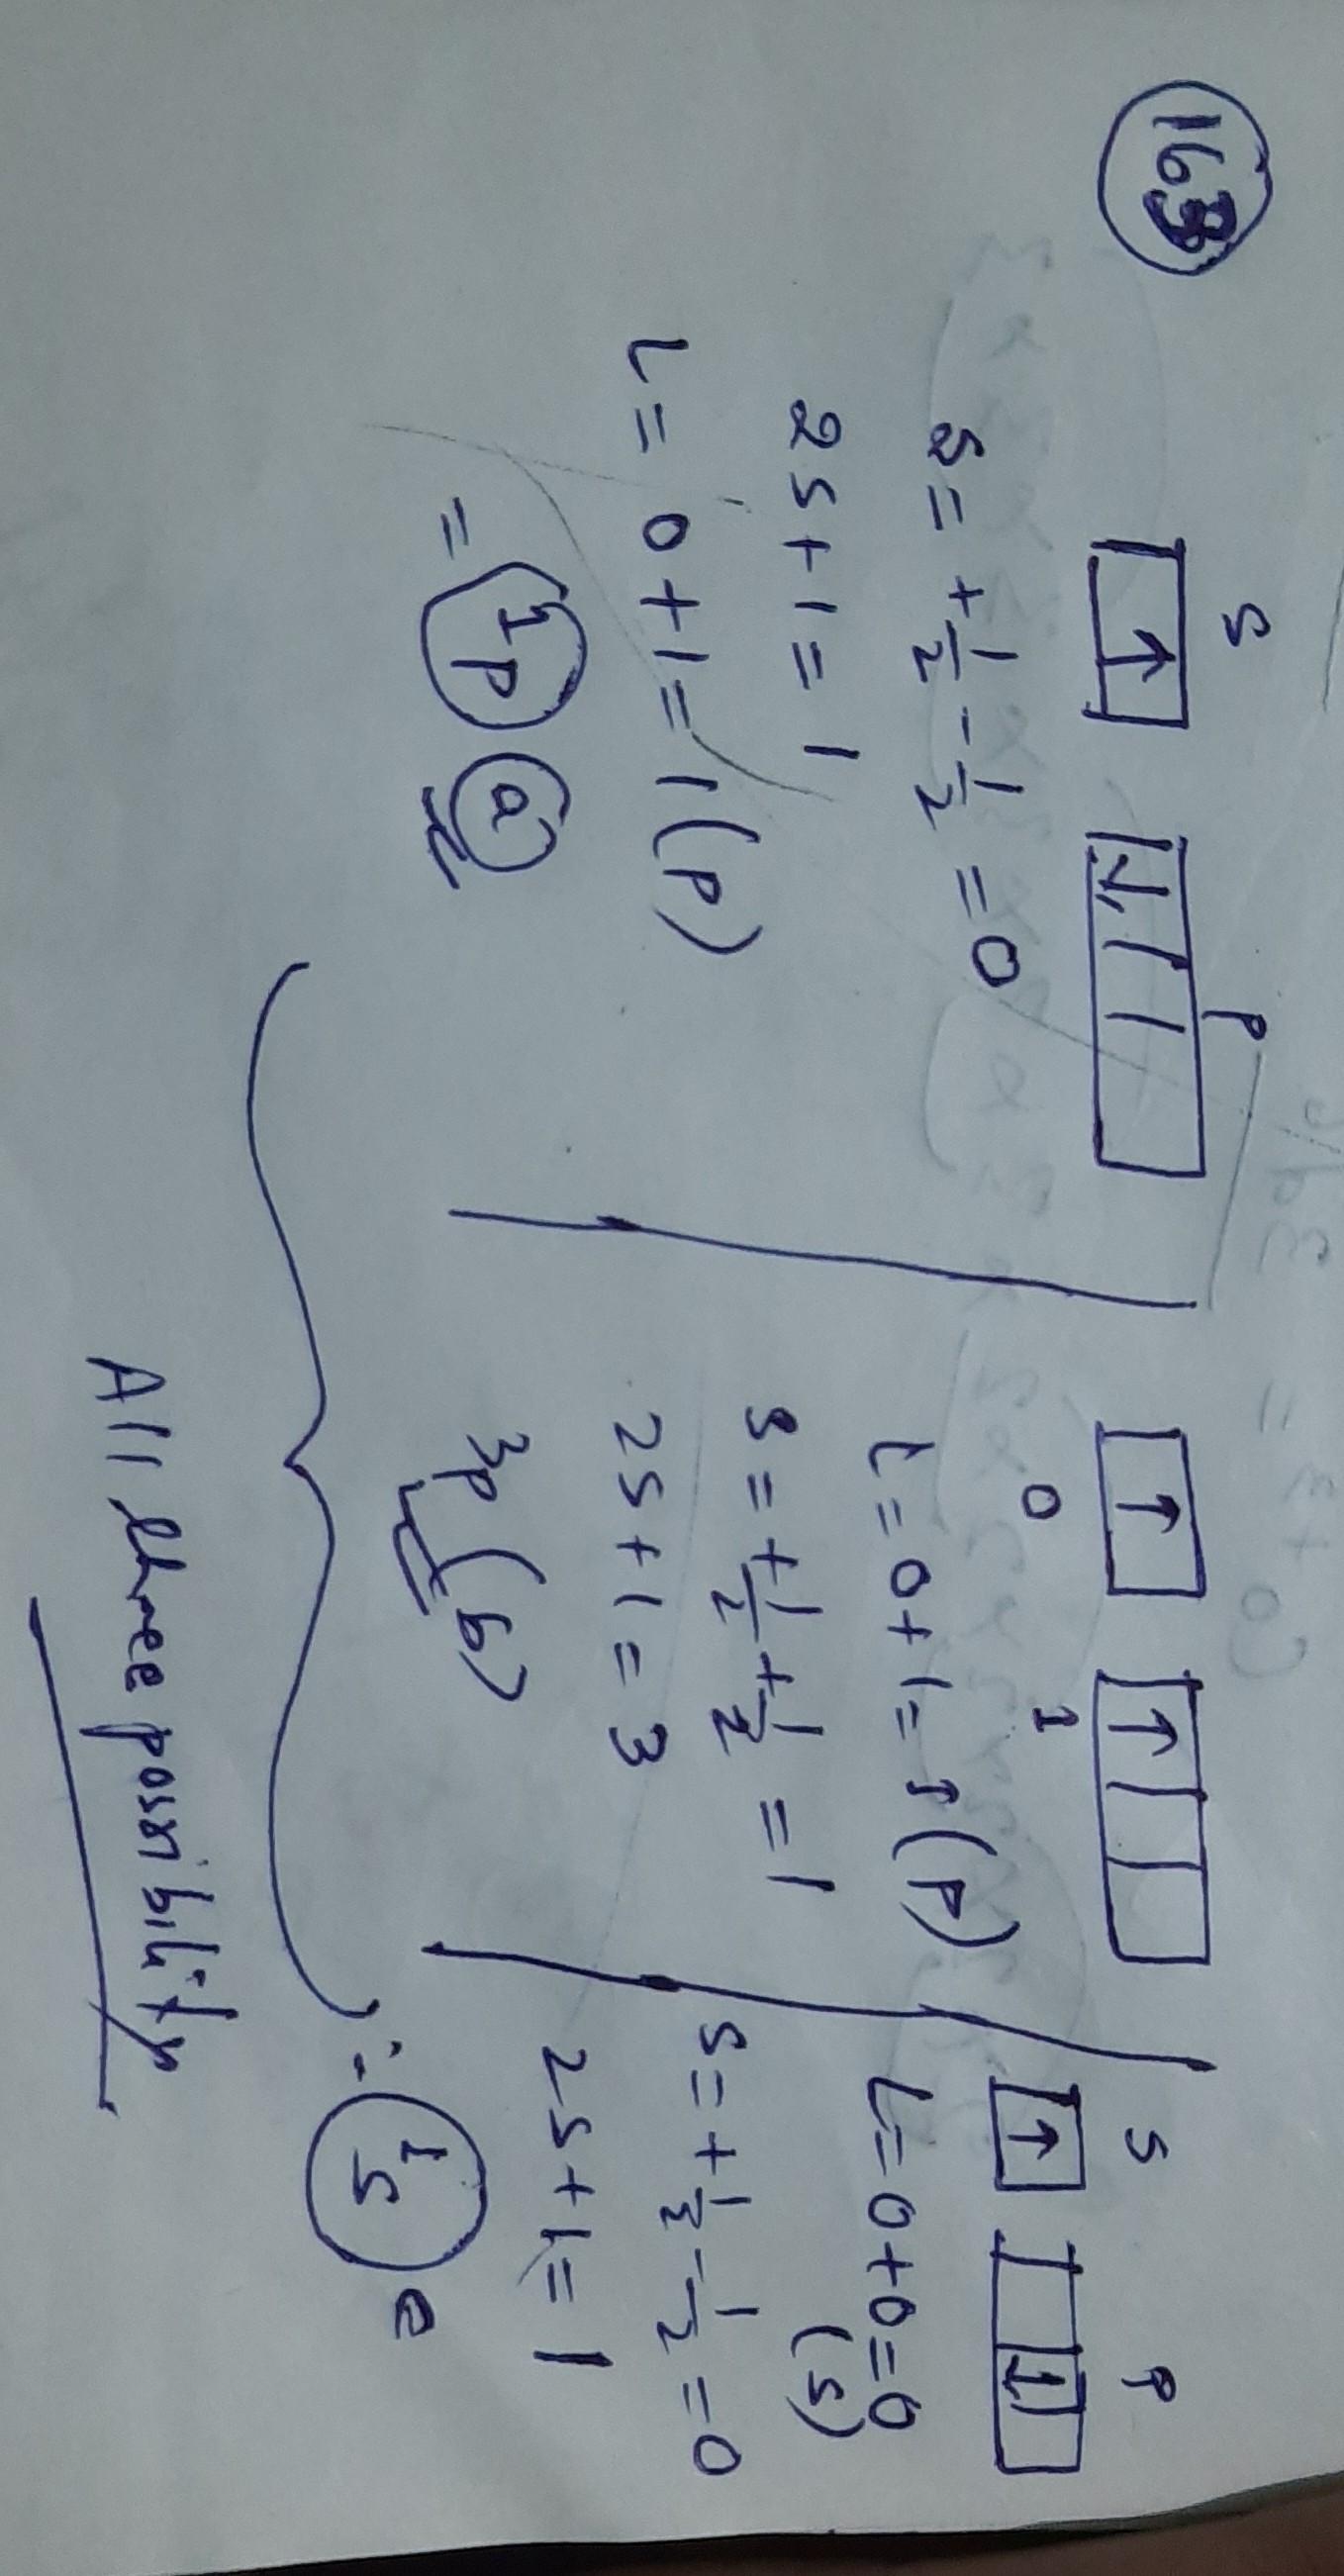 163
S P
↑ 1
S = + 1/2 - 1/2 = 0
2S + 1 = 1
L = 0 + 1 = 1 (P)
= ¹P (a)
↑ ↑
0 1
L = 0 + 1 = 1 (P)
S = + 1/2 + 1/2 = 1
2S + 1 = 3
³P (b)
S P
↑ 1
L = 0 + 0 = 0
(S)
S = + 1/2 - 1/2 = 0
2S + 1 = 1
¹S e
All three possibility